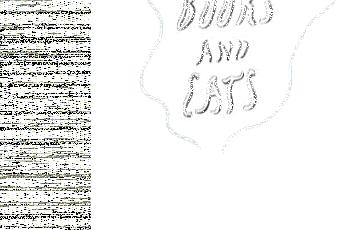 BOOKS
AND
CATS